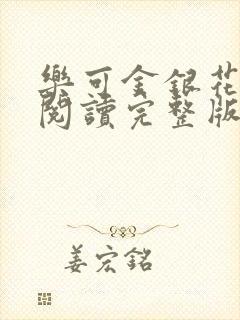 樂可金銀花
閱讀完整版
姜宏銘